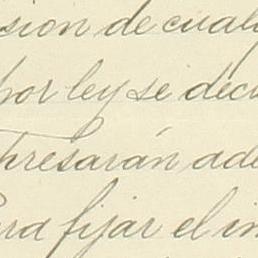 sion de cual
por ley se decl
presarán ade
para fijar el in